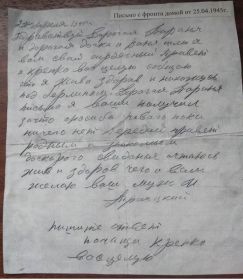 Письмо с фронта домой от 25.04.1945г.
25 апреля 1945
Здравствуй Дорогая Марина
и дорогая дочка и Ваня шлю я
вам свой сердечный привет
и крепко вас целую сообщаю
что я жив здоров и нахожусь
под Берлином Дорогая Марина
письмо я ваше получил
за что спасибо нового пока
ничего нет передай привет
родным и знакомым
до скорого свидания остаюсь
жив и здоров чего и вам
желаю ваш муж И
пишите ответ
крепко
вас целую